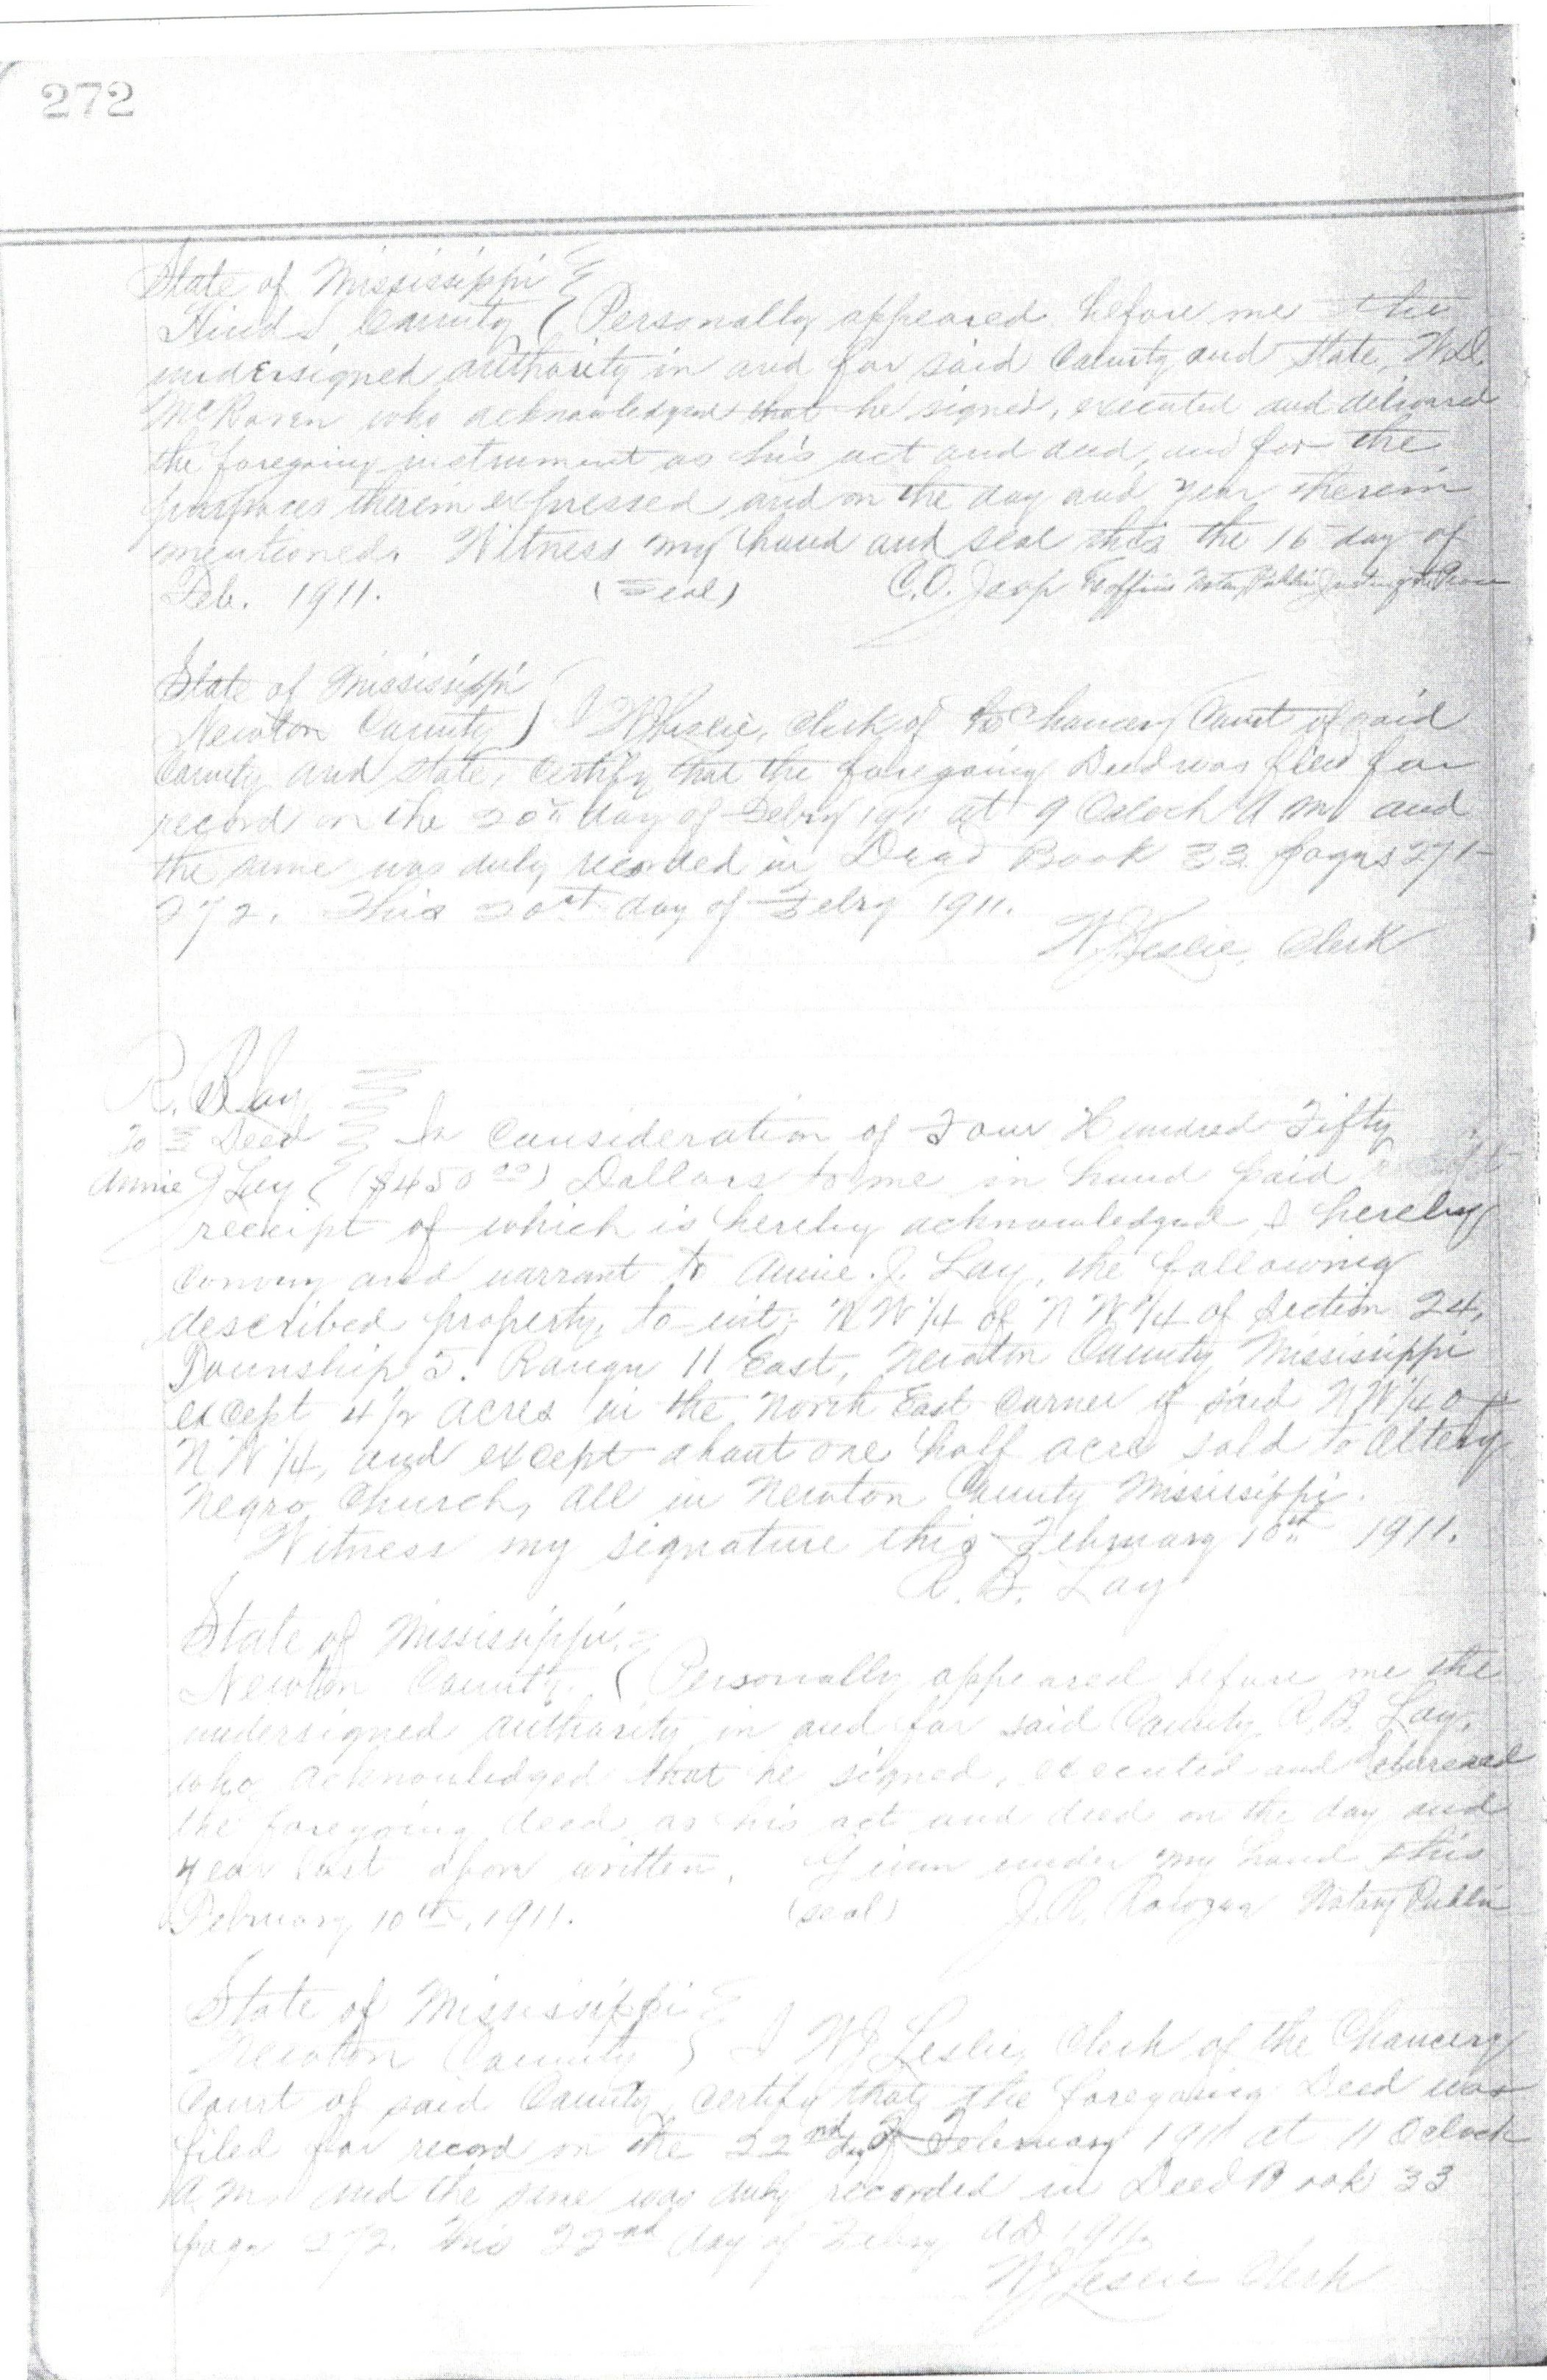 272
State of Mississippi
Hinds County Personally appeared before me the
undersigned authority in and for said County and State, W.D.
McRaven who acknowledged that he signed, executed and delivered
the foregoing instrument as his act and deed, and for the
purposes therein expressed and on the day and year therein
mentioned. Witness my hand and seal this the 16 day of
Feb. 1911. (Seal) C.O. Jsop Exofficio Notary Public Justice of the Peace
State of Mississippi
Newton County I W J Leslie, Clerk of the Chancery Court of said
County and State, Certify that the foregoing Deed was filed for
record on the 20th day of Febry 1911 at 9 Oclock A M and
the same was duly recorded in Deed Book 33 pages 271-
272. This 20th day of Febry 1911.
W J Leslie, Clerk
R. B Lay
To Deed In Consideration of Four Hundred Fifty
Annie J Lay ($450 00) Dollars to me in hand paid
receipt of which is hereby acknowledged I hereby
Convey and warrant to Annie. J. Lay, the following
described property, to-wit; N W 1/4 of N W 1/4 of Section 24,
Township 5. Range 11 East, Newton County Mississippi
except 4 1/2 acres in the North East Corner of said N W 1/4 of
N W 1/4, and except about one half acre sold to
Negro Church, all in Newton County Mississippi.
Witness my signature this February 10th 1911.
R. B. Lay
State of Mississippi,
Newton County. Personally appeared before me the
undersigned authority in and for said County R. B. Lay,
who acknowledged that he signed, executed and delivered
the foregoing deed as his act and deed on the day and
year last above written. Given under my hand this
February 10th, 1911. (seal) J. R. Notary Public
State of Mississippi
Newton County I W J Leslie Clerk of the Chancery
Court of said County, certify that the foregoing Deed was
filed for record on the 22nd day of February 1911 at 11 Oclock
A. M. and the same was duly recorded in Deed Book 33
page 272. This 22nd day of Febry AD 1911.
W J Leslie Clerk